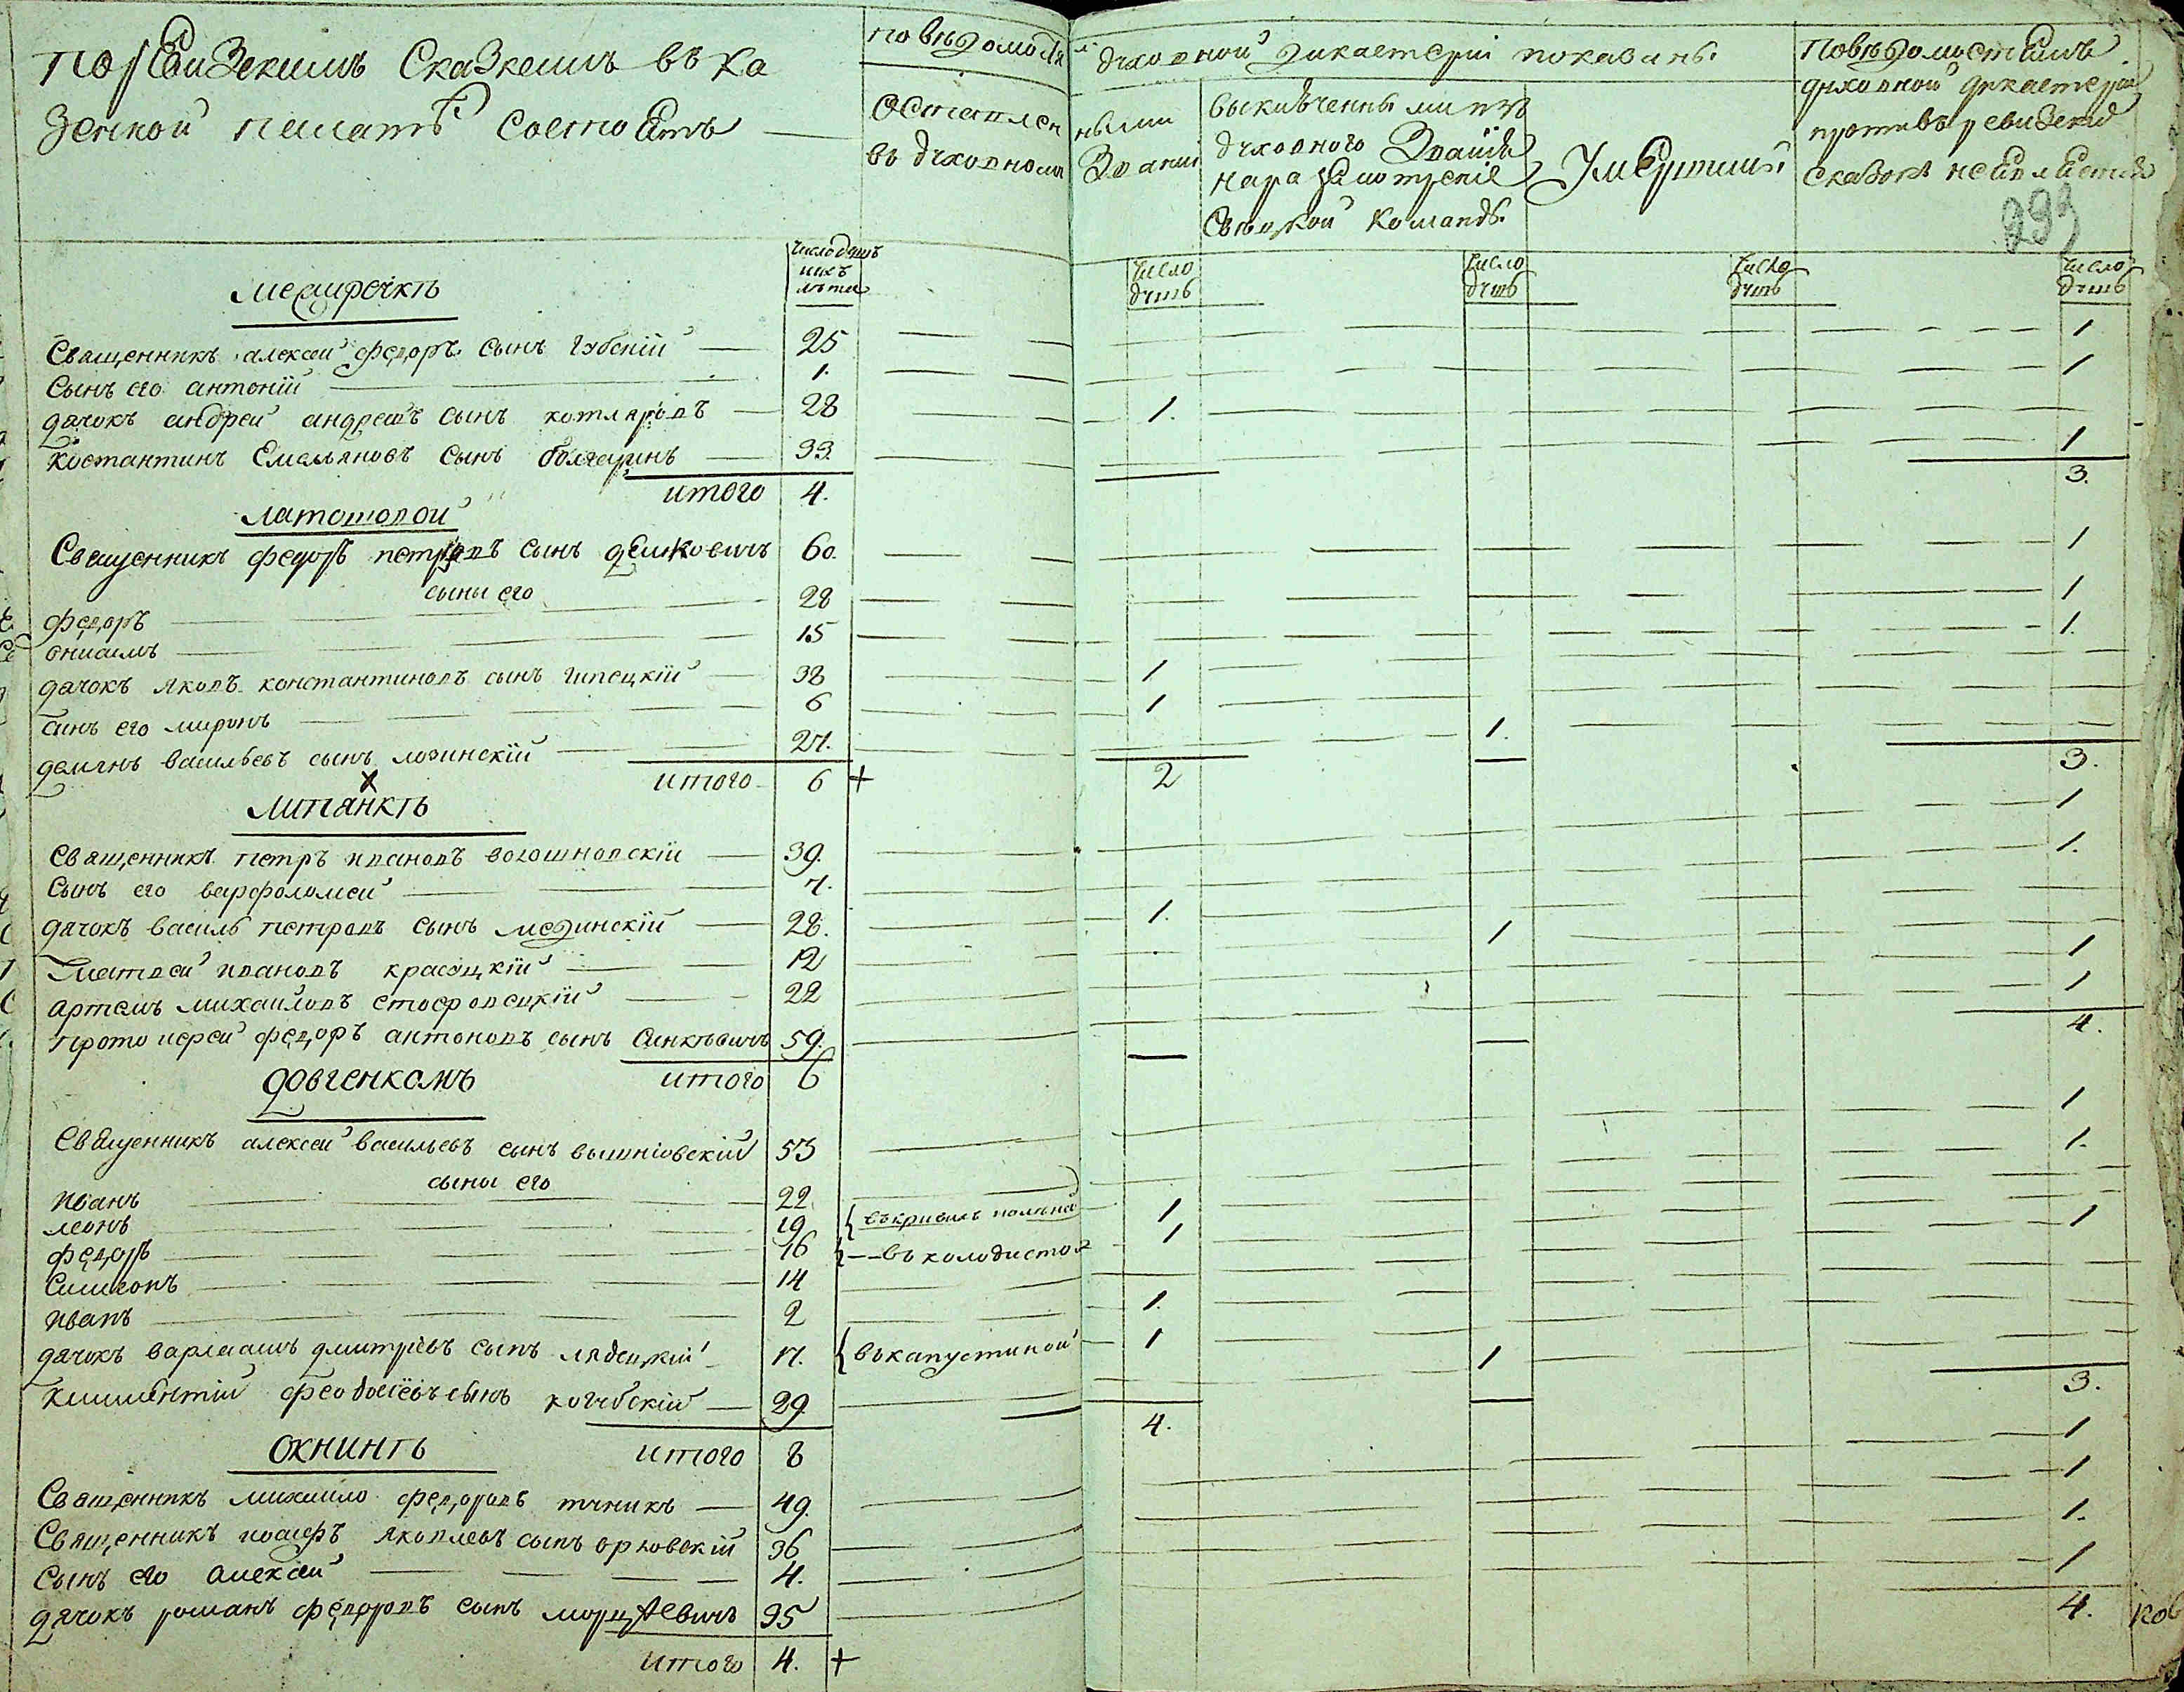 По ревизскимъ сказкамъ въ ка
зенной палатѣ состоитъ
по вѣдомостя
м духовной дикастеріи показаны
оставлен
ными
въ духовномъ
звании
выключенными изъ
духовного званія
на разсмотреніе
свѣцкой команды
Умершими
По вѣдомостямъ
духовной дикастеріи
противъ ревизскихъ
сказокъ не является
293
число душъ
ихъ
лѣта
число
душъ
число
душъ
число
душъ
число
душъ
межиречкѣ
Священникъ алексей федоръ сынъ губскій 25 1
Сынъ его антоній 1. 1
дячокъ андрей андреевъ сынъ котляровъ 28 1.
Костантинъ Емельяновъ сынъ болгаринъ 33 1
итого 4. 3.
латошовои
Священникъ федоръ петровъ сынъ демковичъ 60. 1
сыны его
федоръ 28 1
онисимъ 15 1.
дячокъ яковъ константиновъ сынъ липецкій 38 1
синъ его миронъ 6 1
демянъ васильевъ сынъ лозинскій 27. 1.
итого 6 + 2 3.
липянкѣ
Священникъ петръ ивановъ волошновскій 39. 1
Сынъ его варфоломей 7. 1.
дячокъ василь петровъ сынъ мединскій 28. 1.
Матвей ивановъ красуцкій 12 1
артемъ михайловъ 22 1
прото иерей федоръ антоновъ сынъ Синкѣвичъ 59. 1
итого 6 4.
довгенкомъ
Священникъ алексей васильевъ сынъ вышнѣовскій 53 1
сыны его
иванъ 22 1.
леонъ 19 { въ кривыхъ колѣна 1
федоръ 16 { въ колодистой 1
Симеонъ 14 1
иванъ 2 1.
дячокъ варлаамъ дмитріевъ сынъ лядецкій 17. { въ капустиной 1
Климентій феодосіевъ сынъ 29. 1
итого 8 4. 3.
окнинѣ
Священникъ михаило федоровъ 49. 1
Священникъ иосифъ яковлевъ сынъ орловскій 36 1
Сынъ его алексей 4. 1.
дячокъ романъ федоровъ сынъ морцѣевичъ 35 1
итого 4. + 4.